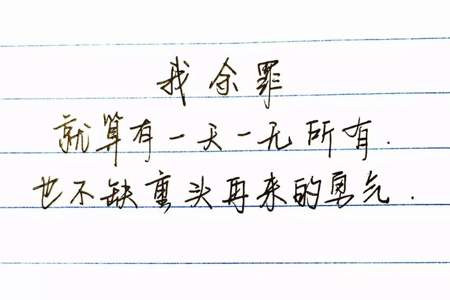 我余罪
就算有一天一无所有.
也不缺重头再来的勇气.